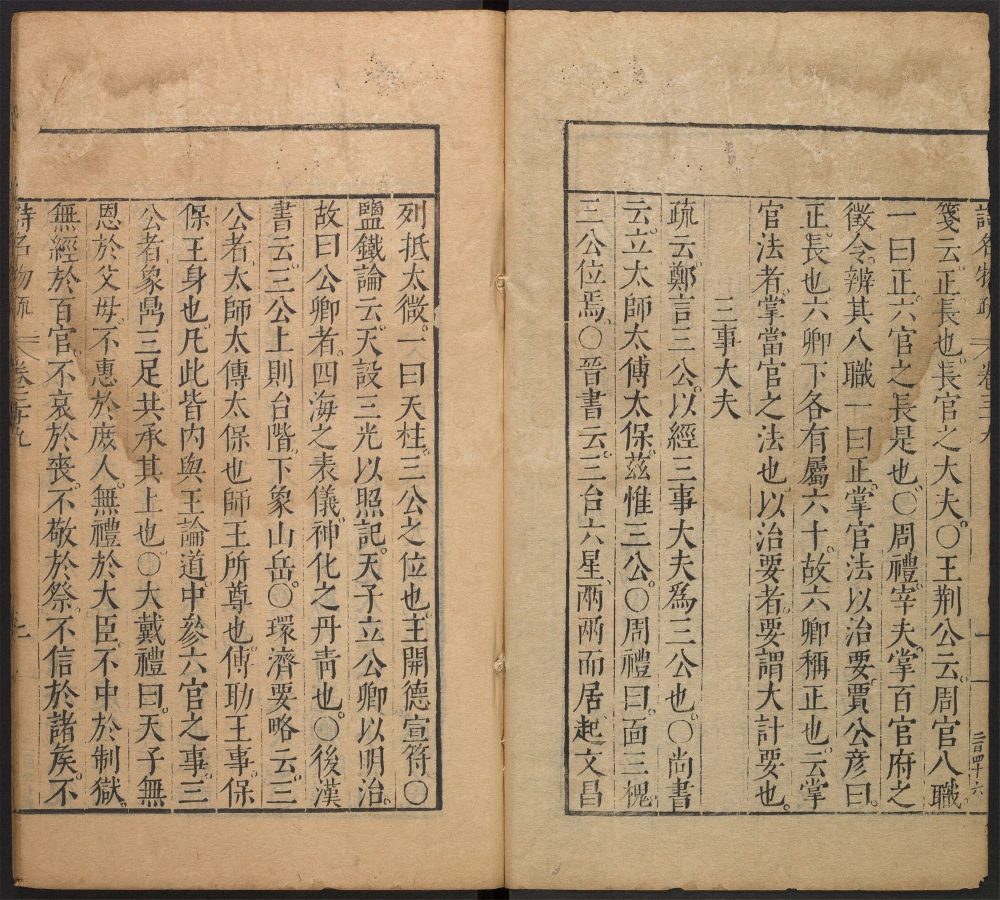 箋云正長也長官之大夫○王荆公云周官八職
一曰正六官之長是也○周禮宰夫掌百官府之
徵令辨其八職一曰正掌官法以治要賈公彦曰
正長也六卿下各有屬六十故六卿稱正也云掌
官法者掌當官之法也以治要者要謂大計要也
三事大夫
疏云鄭言三公以經三事大夫爲三公也○尚書
云立太師太傅太保茲惟三公○周禮曰面三槐
三公位焉○晉書云三台六星兩兩而居起文昌
列抵太微一曰天柱三公之位也主開德宣符○
鹽鐵論云天設三光以照記天子立公卿以明治
故曰公卿者四海之表儀神化之丹青也○後漢
書云三公上則台階下象山岳○環濟要略云三
公者太師太傅太保也師王所尊也傅助王事保
保王身也凡此皆内與王論道中參六官之事三
公者象鼎三足共承其上也○大戴禮曰天子無
恩於父母不惠於庶人無禮於大臣不中於制獄
無經於百官不哀於喪不敬於祭不信於諸矦不
詩名物疏 卷三十九